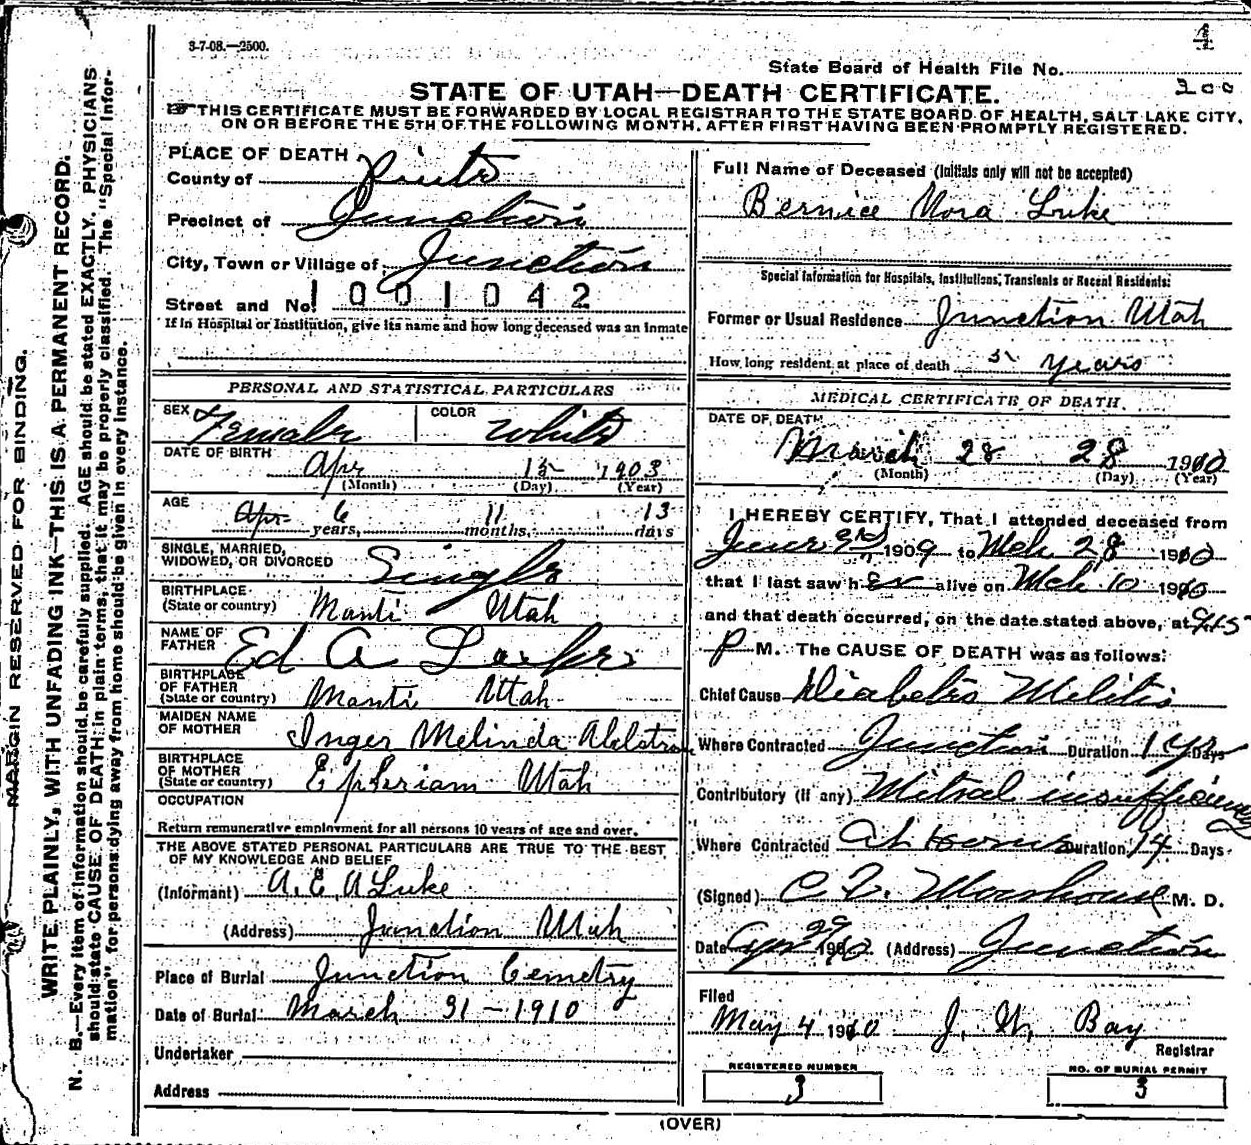 3-7-08.—2500.
4
State Board of Health File No.
200
STATE OF UTAH—DEATH CERTIFICATE.
THIS CERTIFICATE MUST BE FORWARDED BY LOCAL REGISTRAR TO THE STATE BOARD OF HEALTH, SALT LAKE CITY,
ON OR BEFORE THE 5TH OF THE FOLLOWING MONTH, AFTER FIRST HAVING BEEN PROMPTLY REGISTERED.
MARGIN RESERVED FOR BINDING.
WRITE PLAINLY, WITH UNFADING INK—THIS IS A PERMANENT RECORD.
N. B.—Every item of information should be carefully supplied. AGE should be stated EXACTLY. PHYSICIANS
should state CAUSE OF DEATH in plain terms, that it may be properly classified. The "Special Infor-
mation" for persons dying away from home should be given in every instance.
PLACE OF DEATH
County of Piute
Precinct of Junction
City, Town or Village of Junction
Street and No. 1001042
If in Hospital or Institution, give its name and how long deceased was an inmate
PERSONAL AND STATISTICAL PARTICULARS
SEX Female COLOR White
DATE OF BIRTH
Apr 15 1903
(Month) (Day) (Year)
AGE
Apr 6 years, 11 months, 13 days
SINGLE, MARRIED,
WIDOWED, OR DIVORCED Single
BIRTHPLACE
(State or country) Manti Utah
NAME OF
FATHER Ed A
BIRTHPLACE
OF FATHER
(State or country) Manti Utah
MAIDEN NAME
OF MOTHER Inger Melinda
BIRTHPLACE
OF MOTHER
(State or country) Utah
OCCUPATION
Return remunerative employment for all persons 10 years of age and over.
THE ABOVE STATED PERSONAL PARTICULARS ARE TRUE TO THE BEST
OF MY KNOWLEDGE AND BELIEF
(Informant) A. E. A Luke
(Address) Junction Utah
Place of Burial Junction Cemetry
Date of Burial March 31 - 1910
Undertaker
Address
Full Name of Deceased (Initials only will not be accepted)
Bernice Nora Luke
Special Information for Hospitals, Institutions, Transients or Recent Residents:
Former or Usual Residence Junction Utah
How long resident at place of death 5 years
MEDICAL CERTIFICATE OF DEATH
DATE OF DEATH
March 28 28 1910
(Month) (Day) (Year)
I HEREBY CERTIFY, That I attended deceased from
1909 to Mch 28 1910
that I last saw her alive on Mch 10 1910
and that death occurred, on the date stated above, at 9.15
P M. The CAUSE OF DEATH was as follows:
Chief Cause Diabetis Melitis
Where Contracted Junction Duration 1 yr Days
Contributory (if any) Mitral insufficiency
Where Contracted At Home Duration 14 Days
(Signed) M. D.
Date 29 1910 (Address) Junction
Filed
May 4 1910 J. W. Bay
Registrar
REGISTERED NUMBER
3
NO. OF BURIAL PERMIT
3
(OVER)